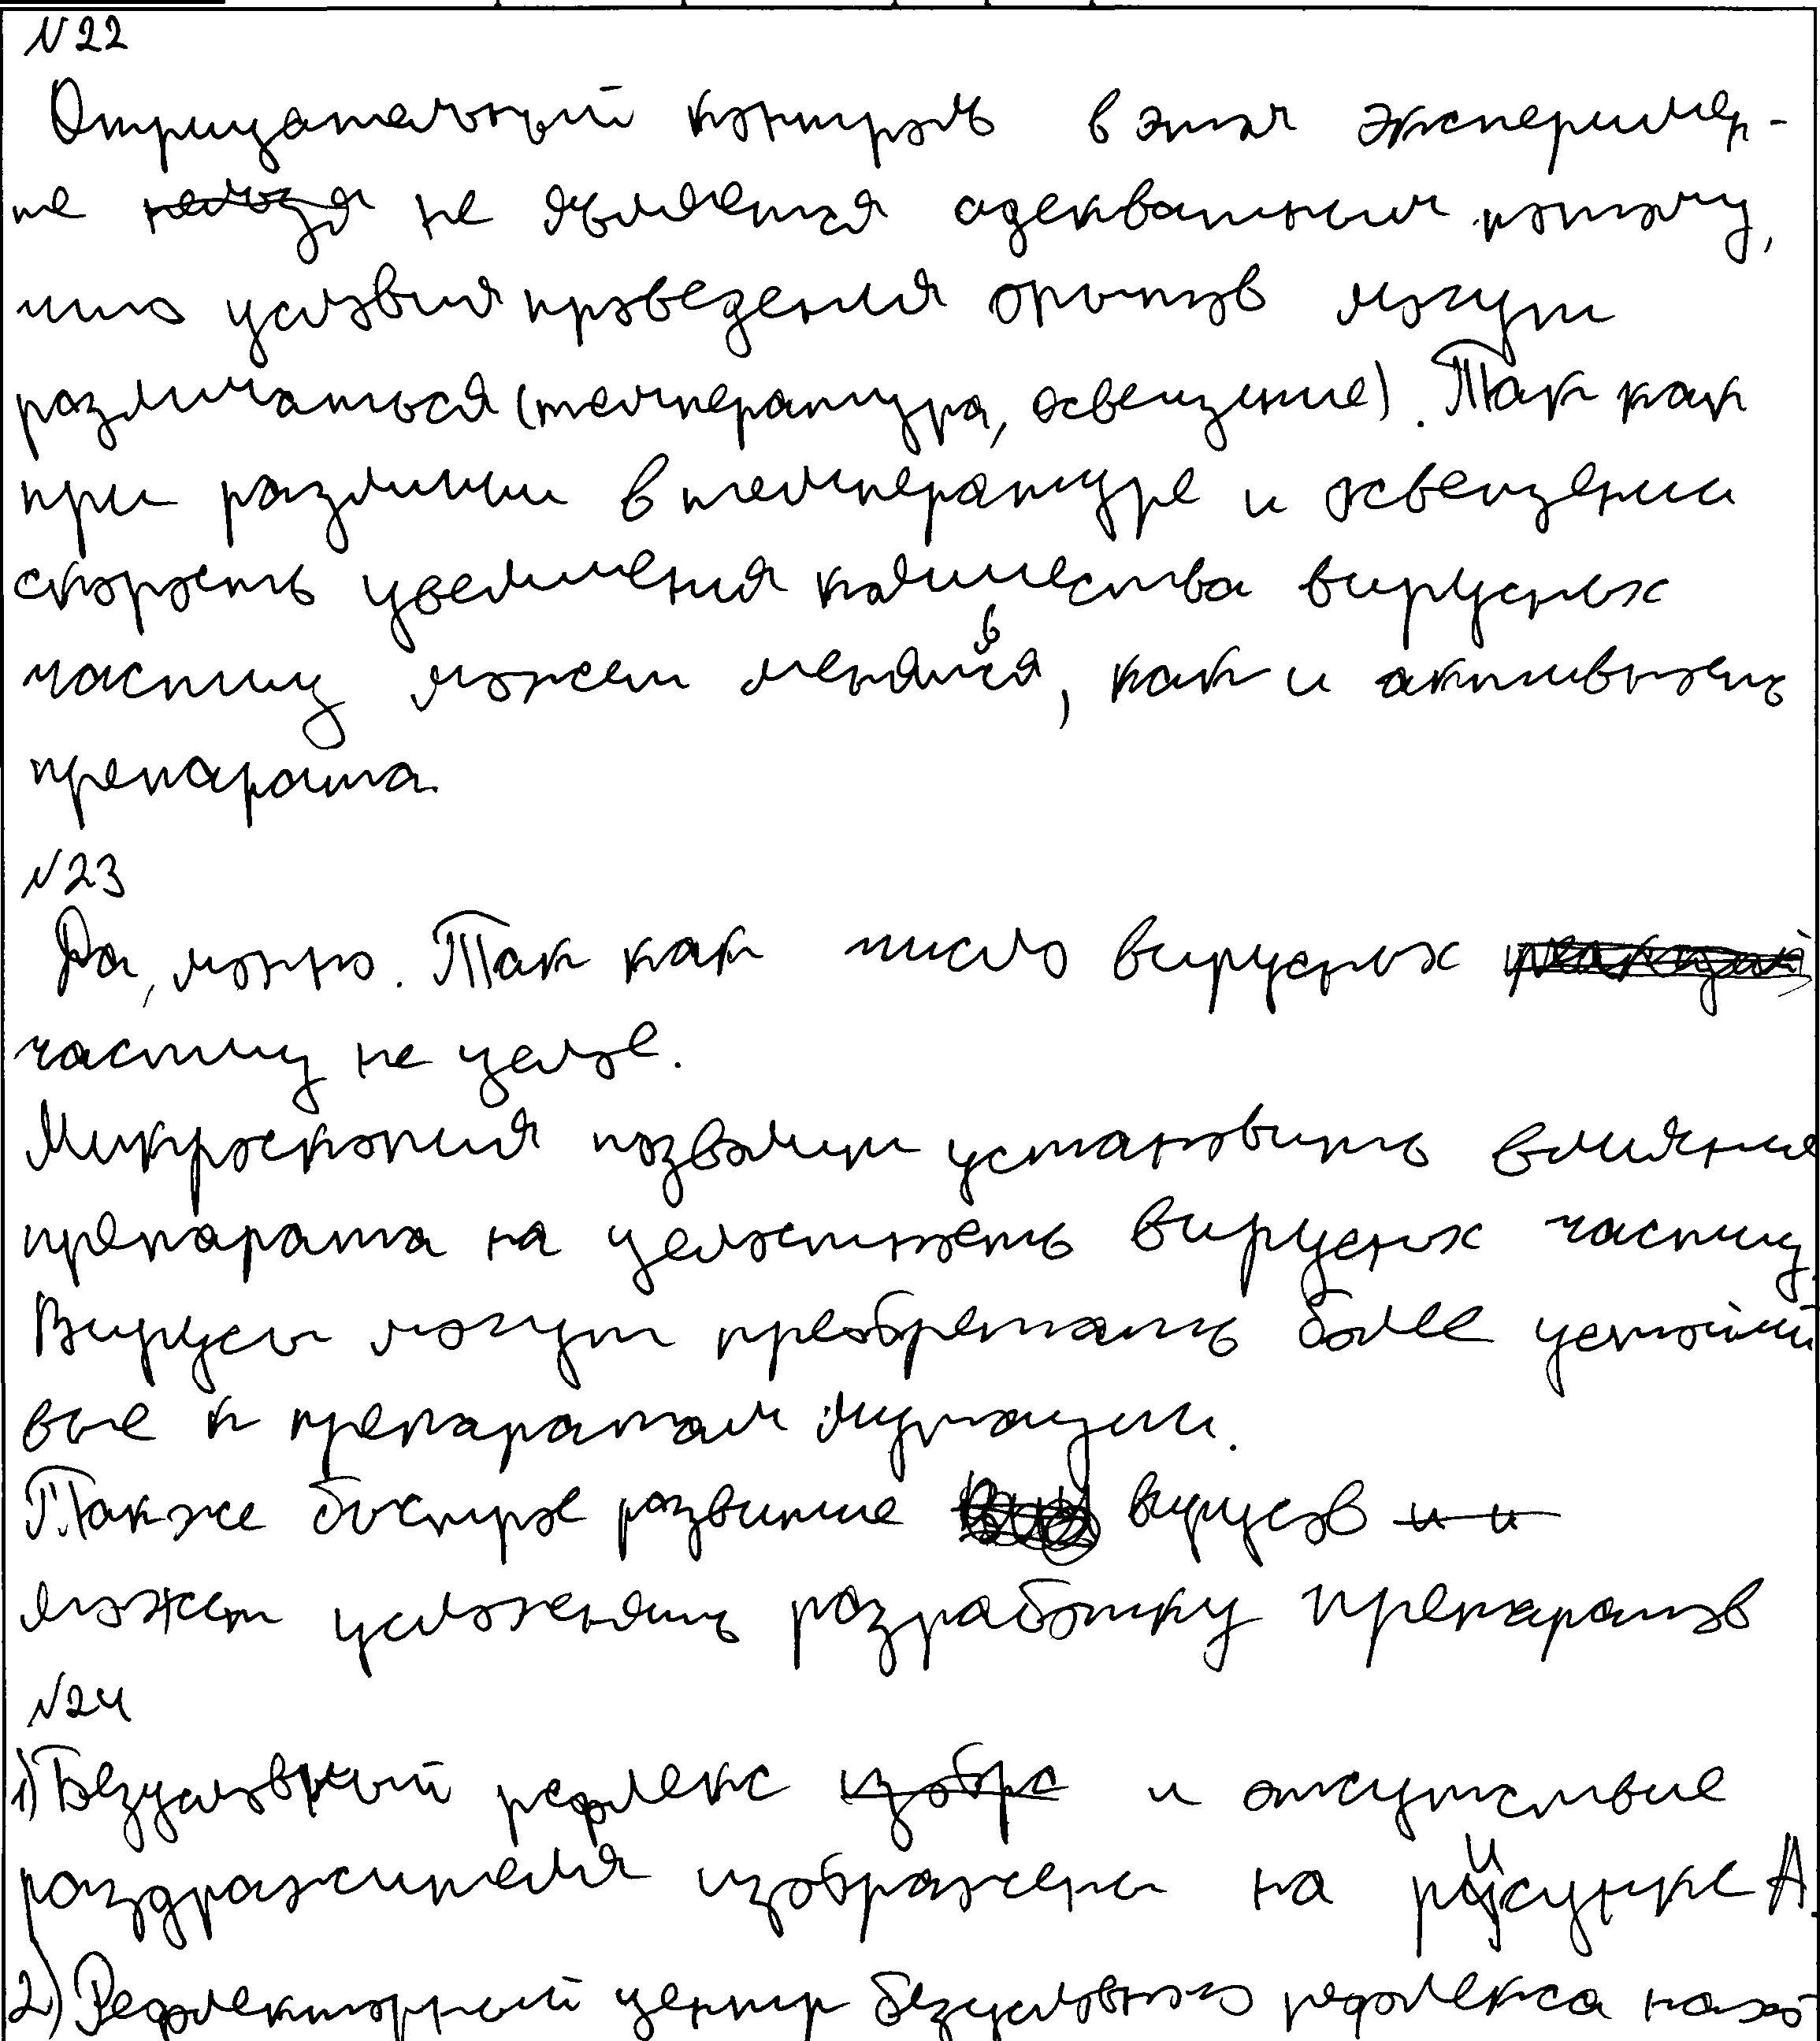 N22
Отрицательный контроль в этом эксперимен-
те нельзя не является адекватным потому,
что условия проведения опытов могут
различаться (температура, освещение). Так как
при различии в температуре и освещении
скорость увеличения количества вирусных
частиц может меняться, как и активность
препарата.
N23
Да, можно. Так как число вирусных
частиц не целое.
Микроскопия позволит установить влияние
препарата на целостность вирусных частиц.
Вирусы могут преобретать более устойчи
вые к препаратам мутации.
Также быстрое развитие вирусов и и
может усложнять разработку препаратов
N24
1) Безусловный рефлекс изобра и отсутствие
раздражителя изображены на рисунке А.
2) Рефлекторный центр безусловного рефлекса нахо